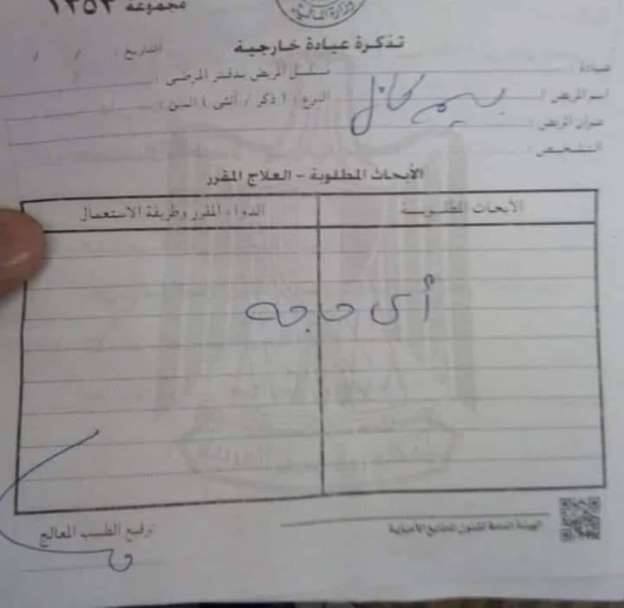 مجموعة ١٢٥٣
وزارة المالية
تذكرة عيادة خارجية
التاريخ : / /
عيادة :
تسلسل المريض بدفتر المرضى :
اسم المريض : كامل
النوع : ( ذكر / أنثى ) السن :
عنوان المريض :
التشخيص :
الأبحاث المطلوبة - العلاج المقرر
الأبحاث المطلوبة
الدواء المقرر وطريقة الاستعمال
أى حاجه
توقيع الطبيب المعالج
الهيئة العامة لشئون المطابع الأميرية